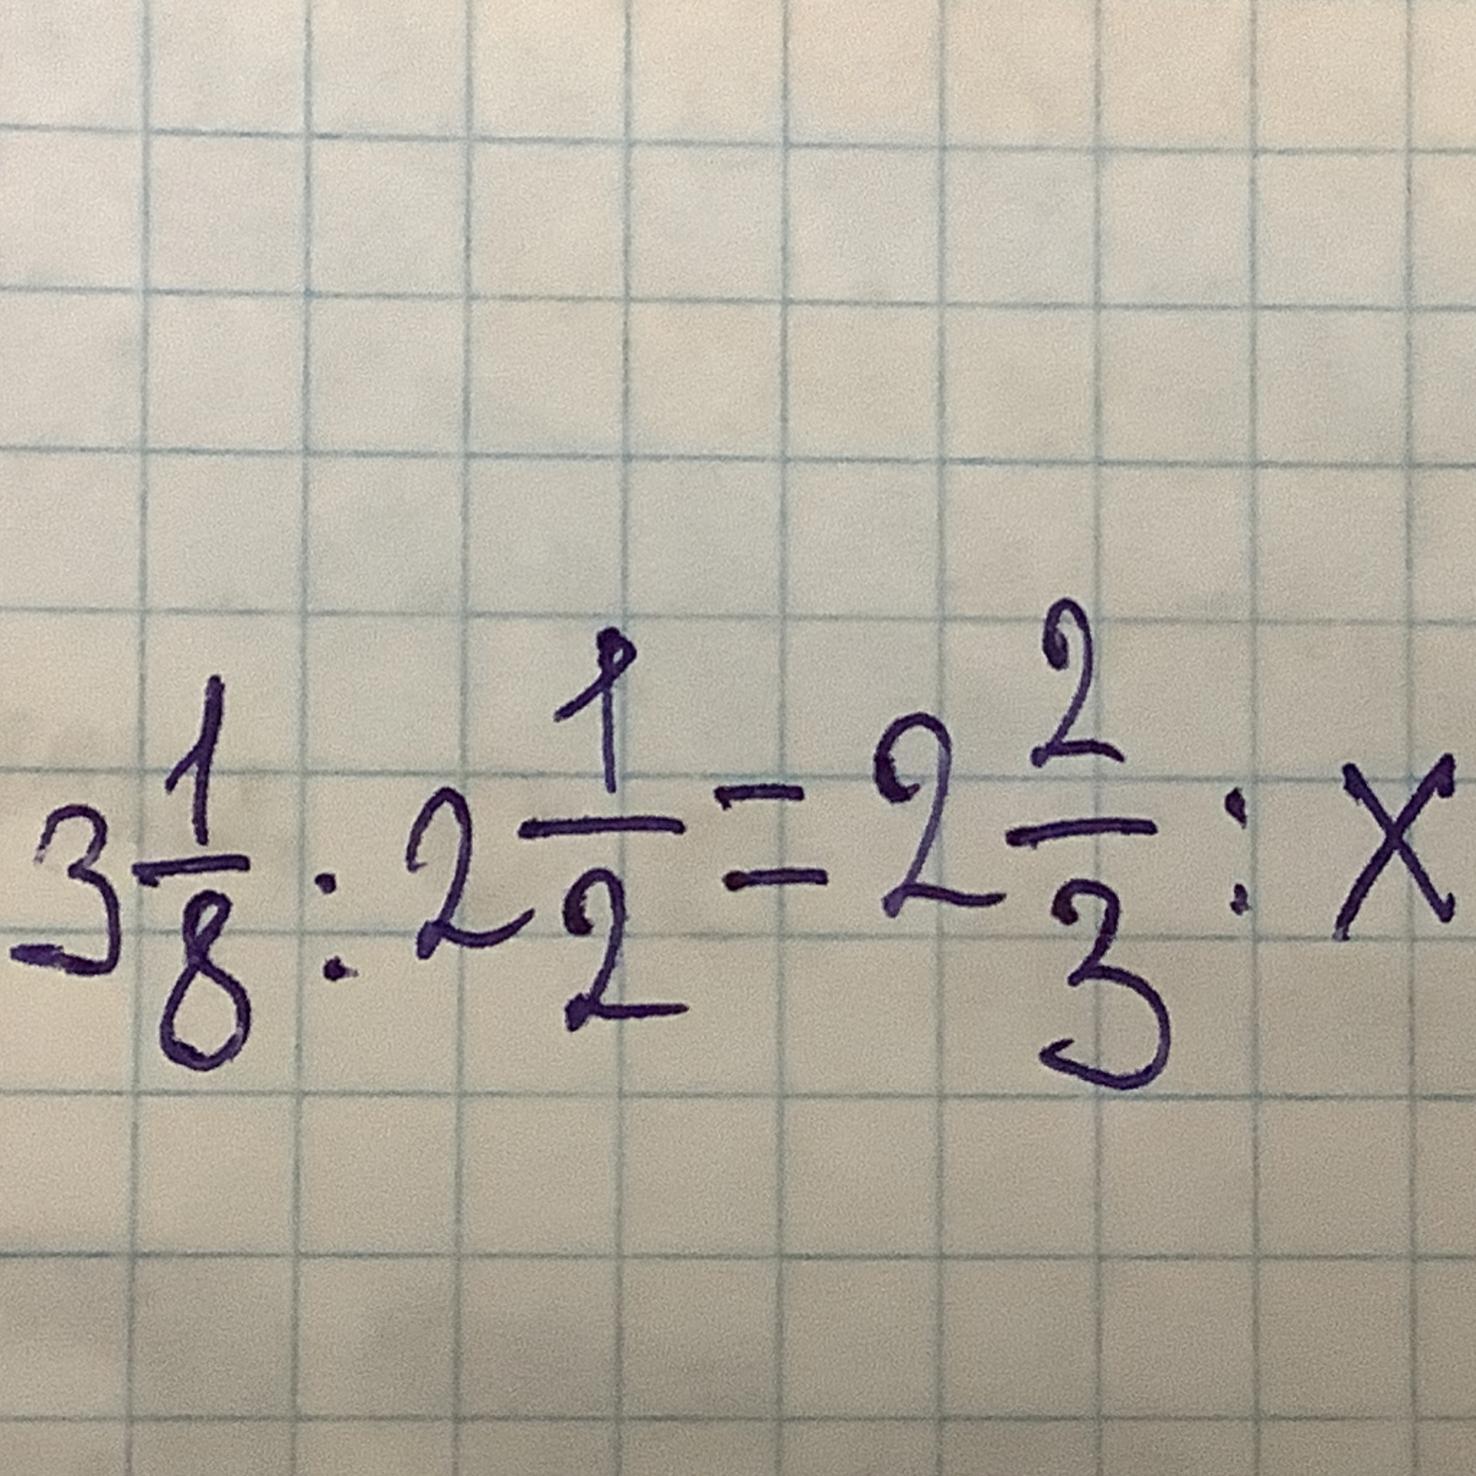 3 1/8 : 2 1/2 = 2 2/3 : x